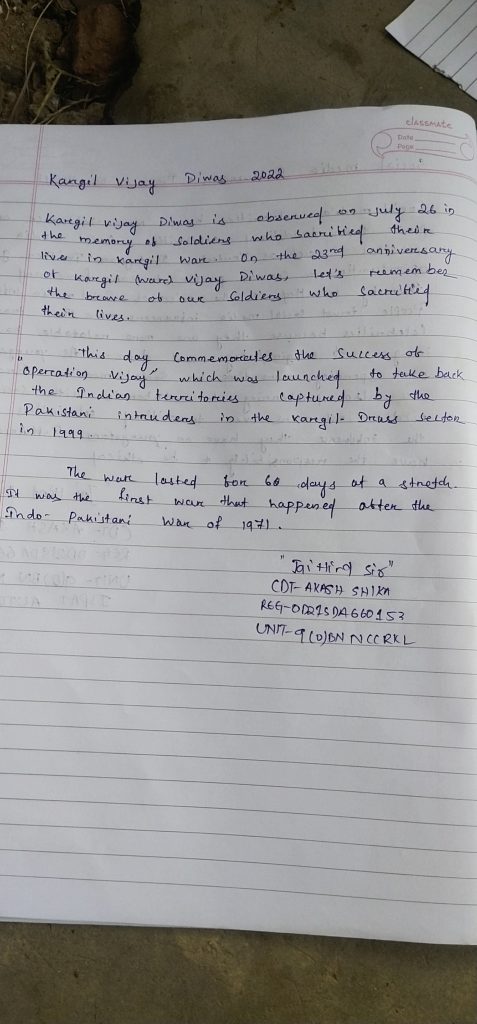 classmate
Date
Page
Kargil Vijay Diwas 2022
Kargil vijay Diwas is observed on july 26 in
the memory of Soldiers who sacrified their
live in kargil war. On the 23rd anniversary
of kargil (war) vijay Diwas, let's remember
the brave of our Soldiers who Sacrified
their lives.
This day Commemorates the Success of
"Operation Vijay" which was launched to take back
the Indian territories captured by the
Pakistani intruders in the kargil-Drass sector
in 1999.
The war lasted for 60 days at a stretch.
It was the first war that happened after the
Indo-Pakistani War of 1971.
"Jai Hind Sir"
CDT-AKASH SHIKA
REG-OD21SDA660153
UNIT-9(O)BN NCC RKL